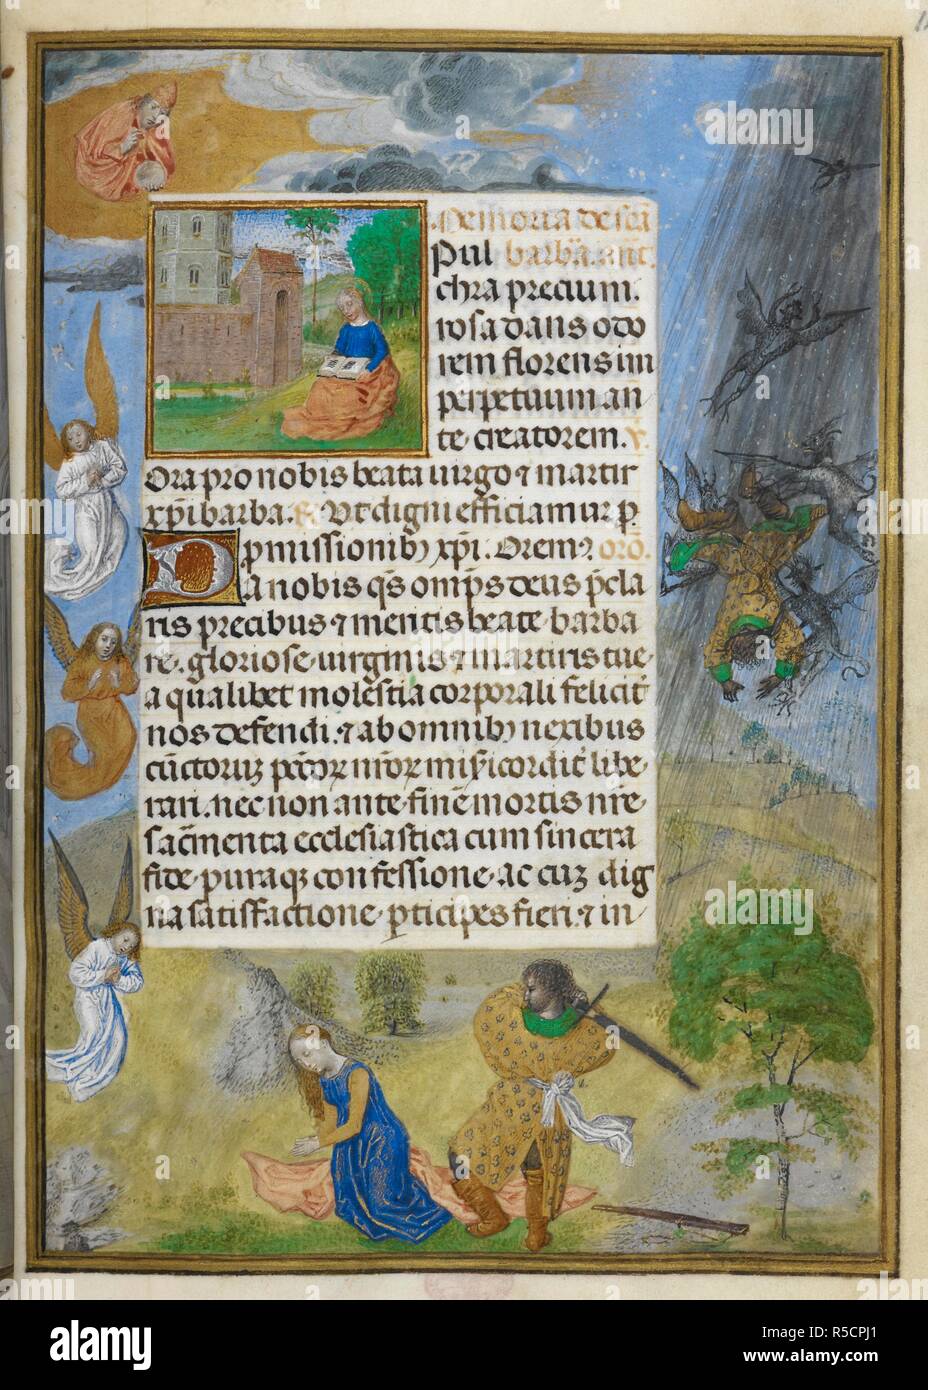 Memoria de sca
Pul barba. ant.
chra precium.
rosa dans odo
rem florens im
perpetuum an
te creatorem. v.
Ora pro nobis beata virgo ⁊ martir
xp̄i barba. R Ut digni efficiamur p
pmissionib xp̄i. Orem⁹ orō.
Da nobis q̄s omp̄s deus p̄cla
ris precibus ⁊ meritis beate barba
re. gloriose virginis ⁊ martiris tue
a qualibet molestia corporali felicit̄
nos defendi. ⁊ ab omnib nexibus
cūctoruꝫ pctōꝝ nrōꝝ mis̄icordit̄ libe
rari. nec non ante finē mortis nr̄e
sacmenta ecclesiastica cum sincera
fide puraqꝫ confessione ac cuꝫ dig
na satisfactione pticipes fieri. ⁊ in
alamy
Image ID: R5CPJ1
www.alamy.com